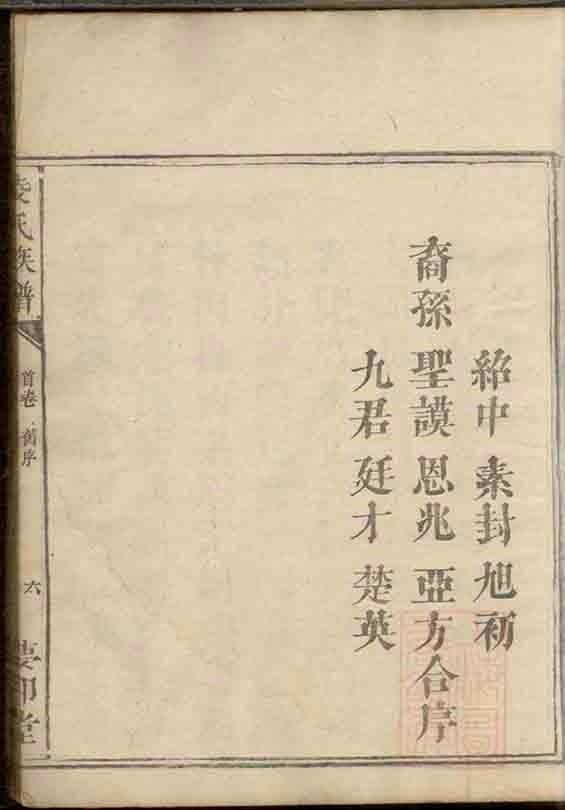 紹中 素封 旭初
裔孫 聖謨 恩兆 亞方 合序
九君 廷才 楚英
氏族譜
首卷 舊序
六
堂